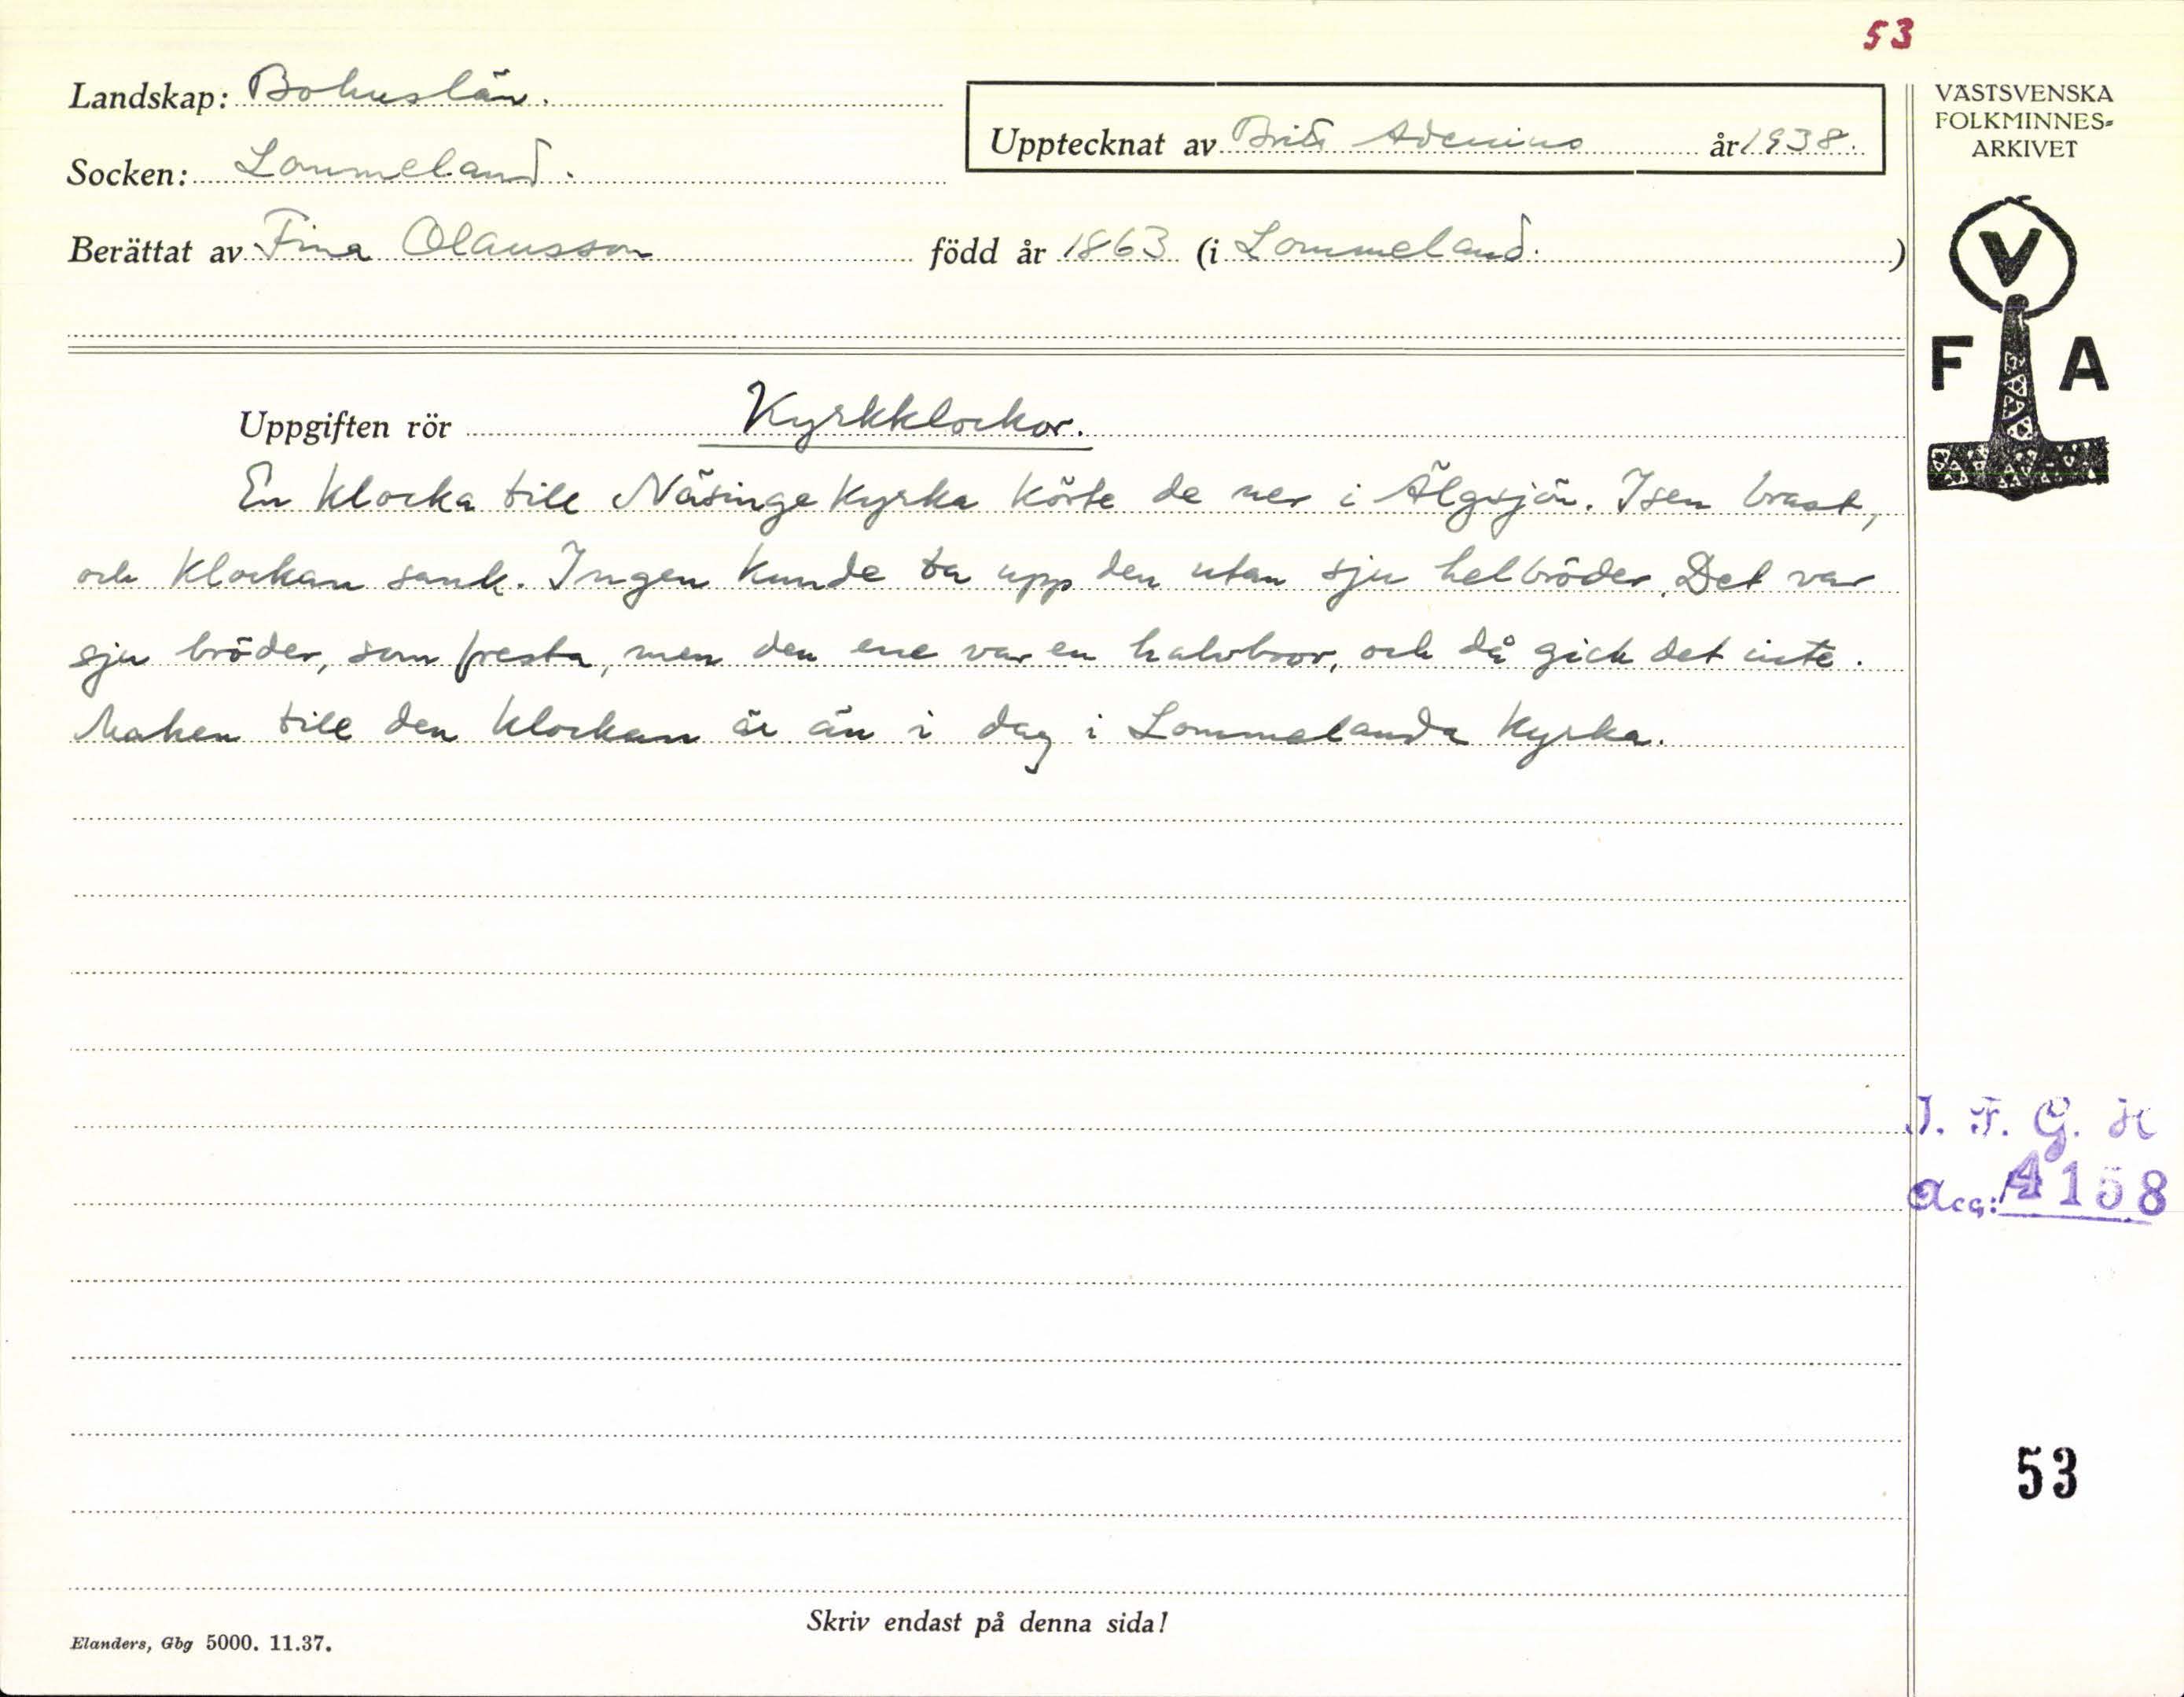 53
Landskap: Bohuslän.
Socken: Lommeland.
Upptecknat av Brita Adenius år 1938.
Berättat av Fina Olausson född år 1863 (i Lommeland. )
VÄSTSVENSKA
FOLKMINNES-
ARKIVET
V
F A
Uppgiften rör Kyrkklockor.
En klocka till Näsinge kyrka körte de ner i Älgsjön. Isen brast,
och klockan sank. Ingen kunde ta upp den utan sju helbröder. Det var
sju bröder, som fresta, men den ene var en halvbror, och då gick det inte.
Maken till den klockan är än i dag i Lommelanda kyrka.
I. F. G. H
Acc: 4158
53
Skriv endast på denna sida!
Elanders, Gbg 5000. 11.37.